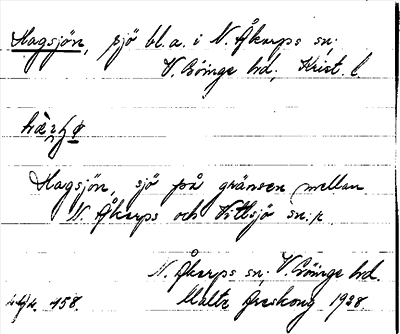 Hagsjön, sjö bl.a. i N. Åkarps sn;
V. Göinge hd, Krist. l.
Hagsjön, sjö på gränsen mellan
N. Åkarps och Vittsjö sn:r.
N. Åkarps sn; V. Göinge hd.
158. Malte Areskoug 1928.